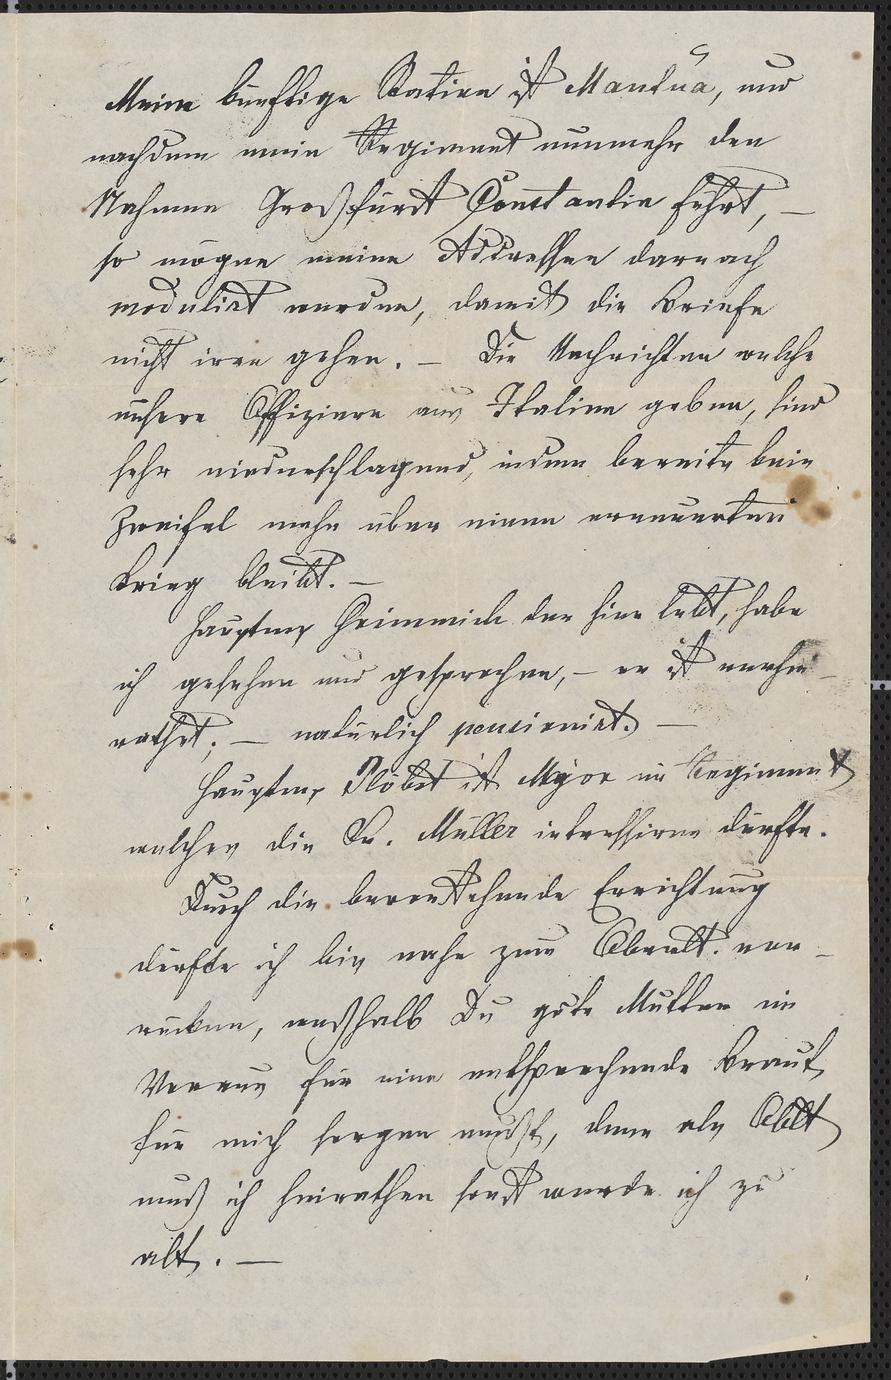 Meine künftige Station ist Mantua, und
nachdem mein Regiment nunmehr den
Nahmen Großfürst Constantin führt, —
so mögen meine Addressen darnach
modulirt werden, damit die Briefe
nicht iren gehen. — Die Nachrichten welche
unsere Offiziere aus Italien geben, sind
sehr niederschlagend, indem bereits kein
Zweifel mehr über einen erneuerten
Krieg bleibt. —
Hauptm. der hier lebt, habe
ich gesehen und gesprochen, — er ist verhei-
rathet; — natürlich pensionirt. —
Hauptm. Plöbst ist Major im Regiment
welches die Fr. Müller intressiren dürfte.
Durch die bevorstehende Errichtung
dürfte ich bis nahe zum Oberlt. vor-
rücken, weßhalb Du gute Mutter im
Voraus für eine entsprechende Braut
für mich sorgen mußt, denn als Oblt
muß ich heirathen sonst werde ich zu
alt. —